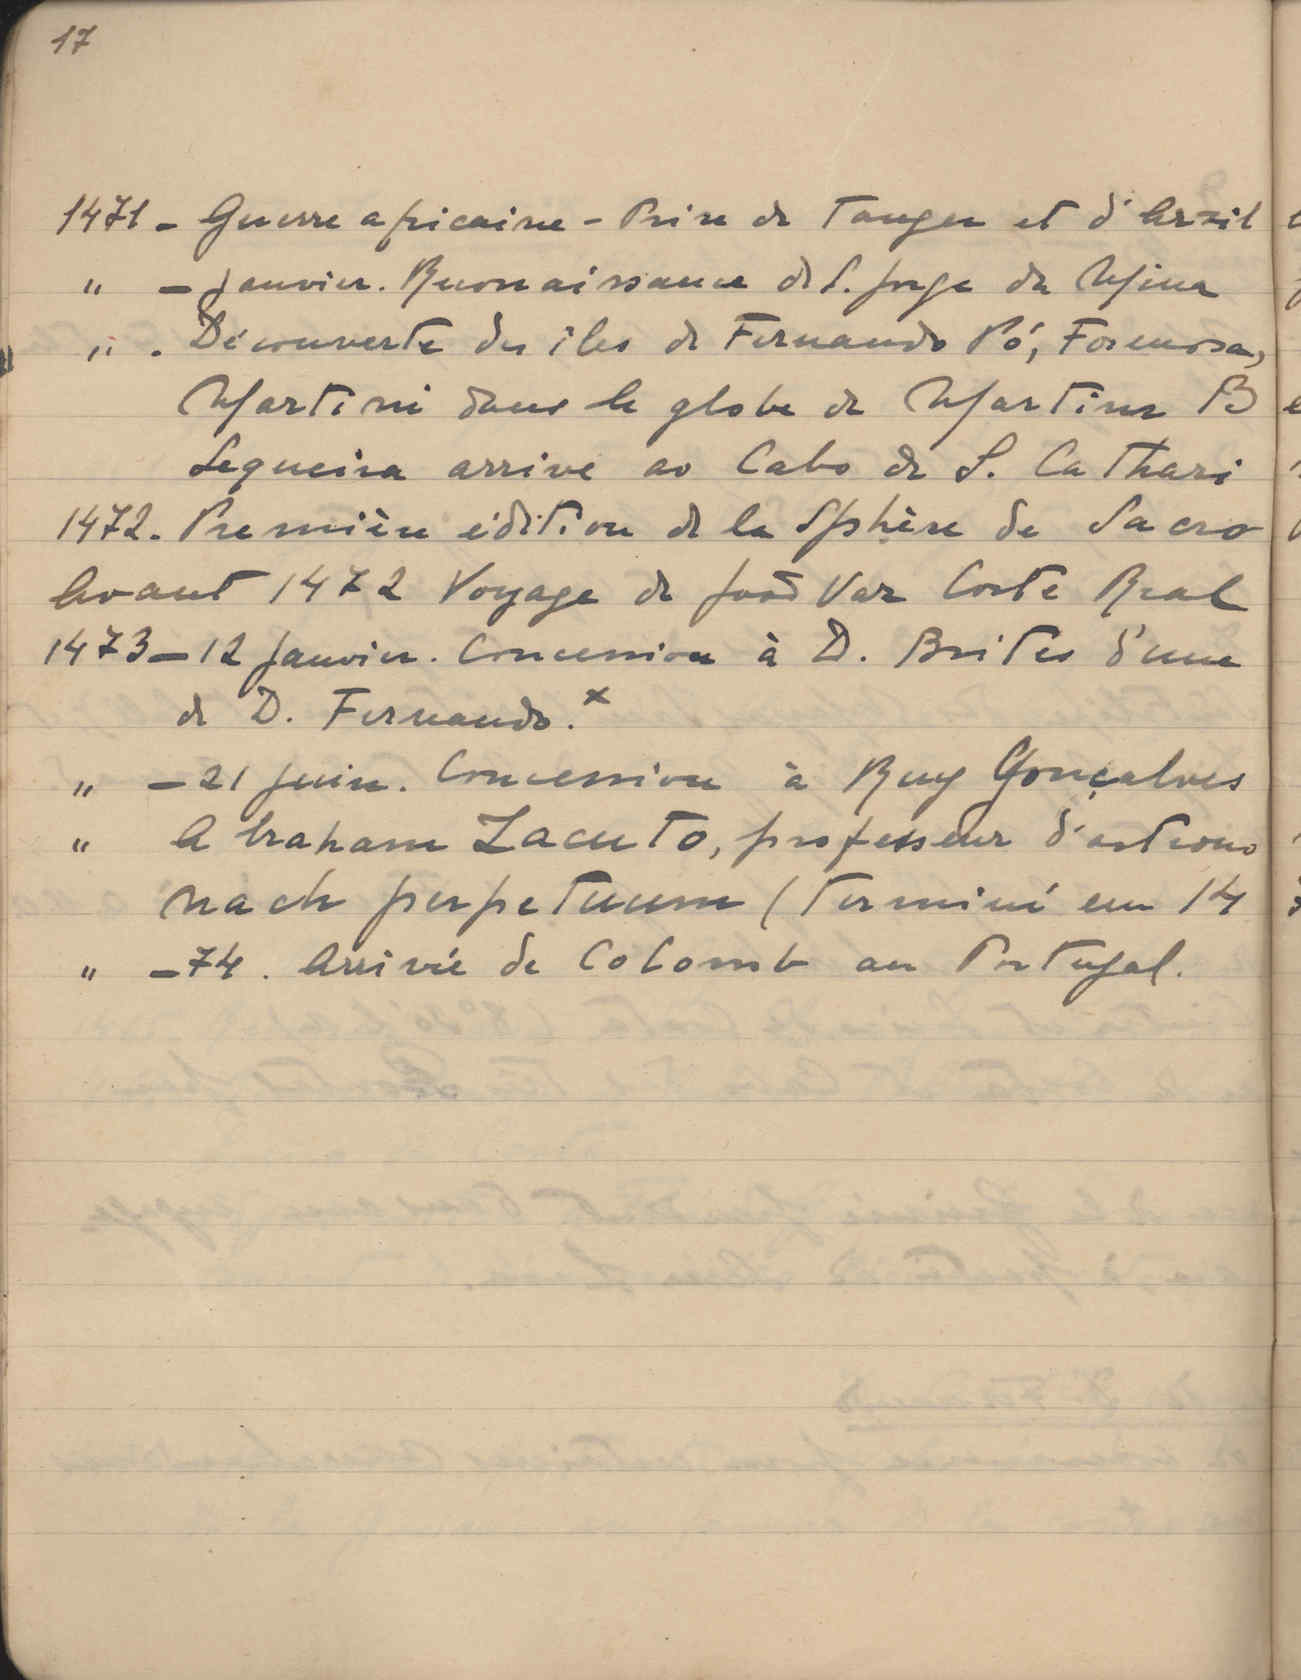 17
1471 - Guerre africaine - Prise de Tanger et d'Arzil
" - Janvier. Reconnaissance de S. Jorge da Mina
" . Découverte des îles de Fernando Pó, Formosa,
Martini dans le globe de Martim B
Sequeira arrive ao Cabo de S. Cathari
1472. Première édition de la Sphère de Sacro
Avant 1472 Voyage de João Vaz Corte Real
1473 - 12 Janvier. Concession à D. Brites d'une
de D. Fernando.x
" - 21 Juin. Concession à Ruy Gonçalves
" Abraham Zacuto, professeur d'astrono
nach perpetuum (terminé em 14
" - 74. Arrivée de Colomb au Portugal.